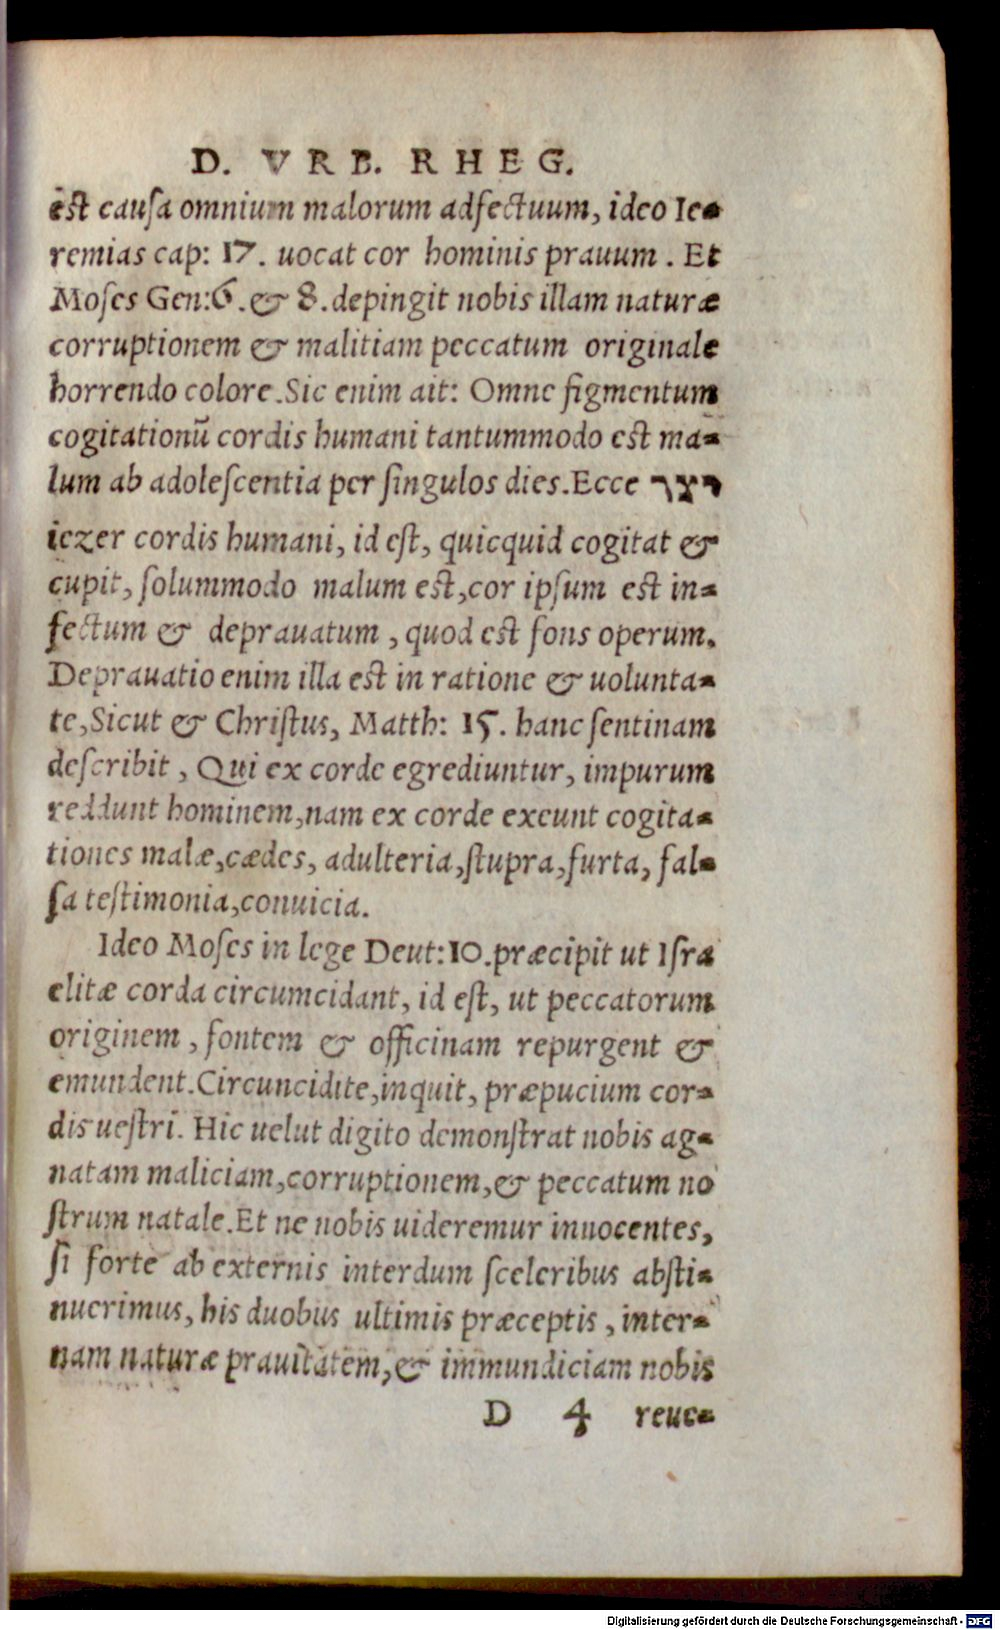 D. VRB. RHEG.
est cauſa omnium malorum adfectuum, ideo Ie-
remias cap: 17. uocat cor hominis prauum. Et
Moſes Gen:6. & 8. depingit nobis illam naturæ
corruptionem & malitiam peccatum originale
horrendo colore. Sic enim ait: Omne figmentum
cogitationū cordis humani tantummodo est ma-
lum ab adoleſcentia per ſingulos dies. Ecce יצר
iezer cordis humani, id eſt, quicquid cogitat &
cupit, ſolummodo malum est, cor ipſum est in-
fectum & deprauatum, quod est fons operum.
Deprauatio enim illa est in ratione & uolunta-
te, Sicut & Chriſtus, Matth: 15. hanc ſentinam
deſcribit, Qui ex corde egrediuntur, impurum
reddunt hominem, nam ex corde exeunt cogita-
tiones malæ, cædes, adulteria, ſtupra, furta, fal-
ſa teſtimonia, conuicia.
Ideo Moſes in lege Deut: 10. præcipit ut Iſra
elitæ corda circumcidant, id eſt, ut peccatorum
originem, fontem & officinam repurgent &
emundent. Circuncidite, inquit, præpucium cor-
dis ueſtri. Hic uelut digito demonſtrat nobis ag-
natam maliciam, corruptionem, & peccatum no
ſtrum natale. Et ne nobis uideremur innocentes,
ſi forte ab externis interdum ſceleribus abſti-
nuerimus, his duobus ultimis præceptis, inter-
nam naturæ prauitatem, & immundiciam nobis
D 4 reue-
Digitalisierung gefördert durch die Deutsche Forschungsgemeinschaft - DFG